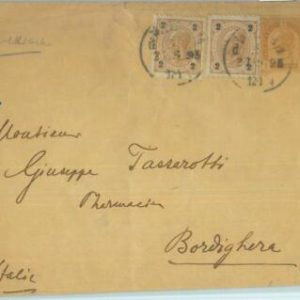 2 2 2 2
95
Monsieur
Giuseppe Tasserotti
Pharmacien
Bordighera
Italie